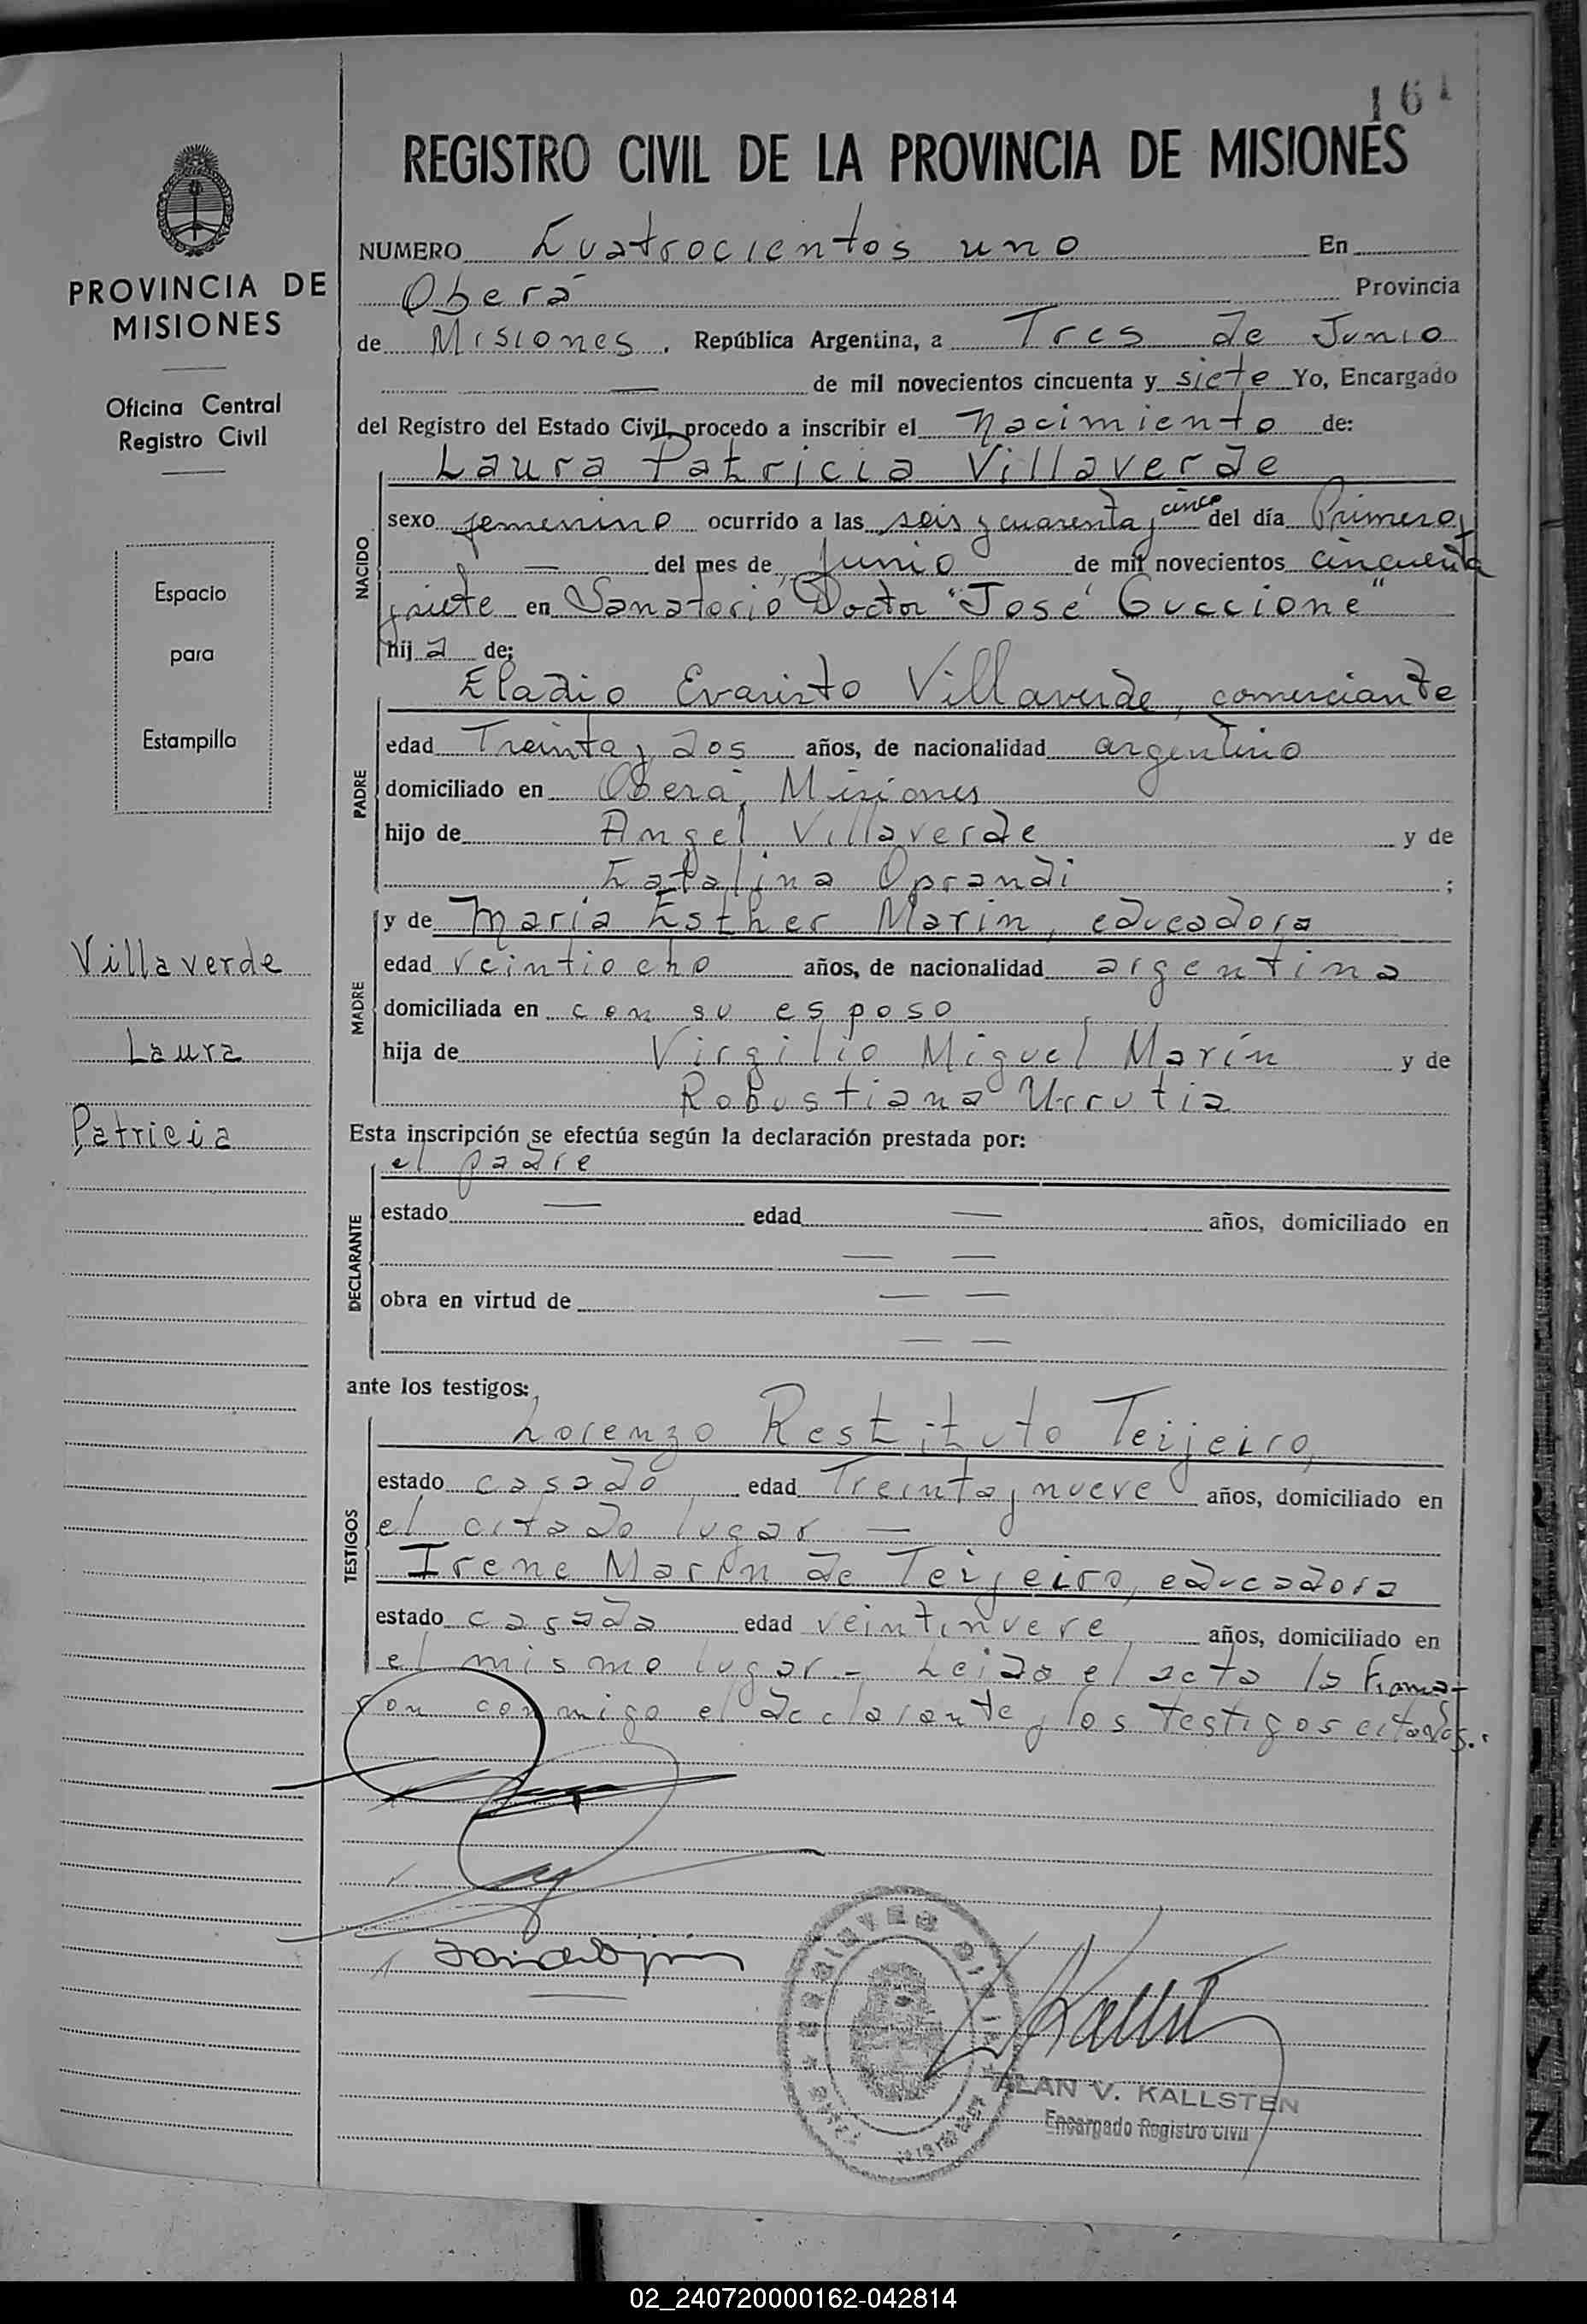 161
REGISTRO CIVIL DE LA PROVINCIA DE MISIONES
PROVINCIA DE
MISIONES
Oficina Central
Registro Civil
Espacio
para
Estampilla
Villaverde
Laura
Patricia
NUMERO Cuatrocientos uno En
Oberá Provincia
de Misiones, República Argentina, a Tres de Junio
— de mil novecientos cincuenta y siete Yo, Encargado
del Registro del Estado Civil, procedo a inscribir el Nacimiento de:
Laura Patricia Villaverde
NACIDO
sexo femenino ocurrido a las seis y cuarenta y cinco del día Primero
— del mes de Junio de mil novecientos cincuenta
y siete en Sanatorio Doctor "José Guccione"
hij a de:
Eladio Evaristo Villaverde, comerciante
PADRE
edad Treinta y dos años, de nacionalidad argentino
domiciliado en Oberá, Misiones
hijo de Angel Villaverde y de
Catalina Oprandi ;
MADRE
y de María Esther Marin, educadora
edad veintiocho años, de nacionalidad argentina
domiciliada en con su esposo
hija de Virgilio Miguel Marín y de
Robustiana Urrutia
Esta inscripción se efectúa según la declaración prestada por:
el padre
DECLARANTE
estado — edad — años, domiciliado en
— —
obra en virtud de — —
— —
ante los testigos:
Lorenzo Restituto Teijeiro,
TESTIGOS
estado casado edad Treinta y nueve años, domiciliado en
el citado lugar —
Irene Marín de Teijeiro, educadora
estado casada edad veintinueve, años, domiciliado en
el mismo lugar - Leida el acta la firma-
ron conmigo el declarante y los testigos citados.
ALAN V. KALLSTEN
Encargado Registro Civil
02_240720000162-042814